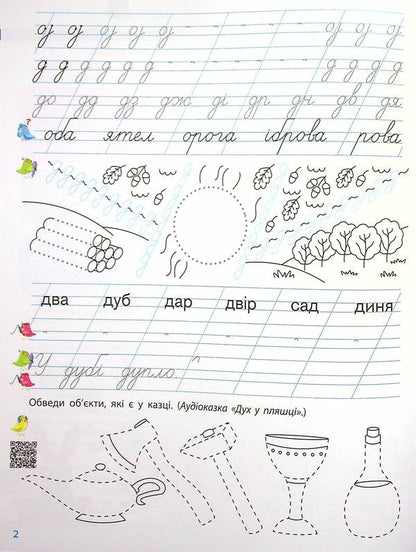 д д д д д д д д д д
до дд дз дж ді др дн дв дя
оба ятел орога іброва рова
два дуб дар двір сад диня
У дубі дупло
Обведи об’єкти, які є у казці. (Аудіоказка «Дух у пляшці».)
2